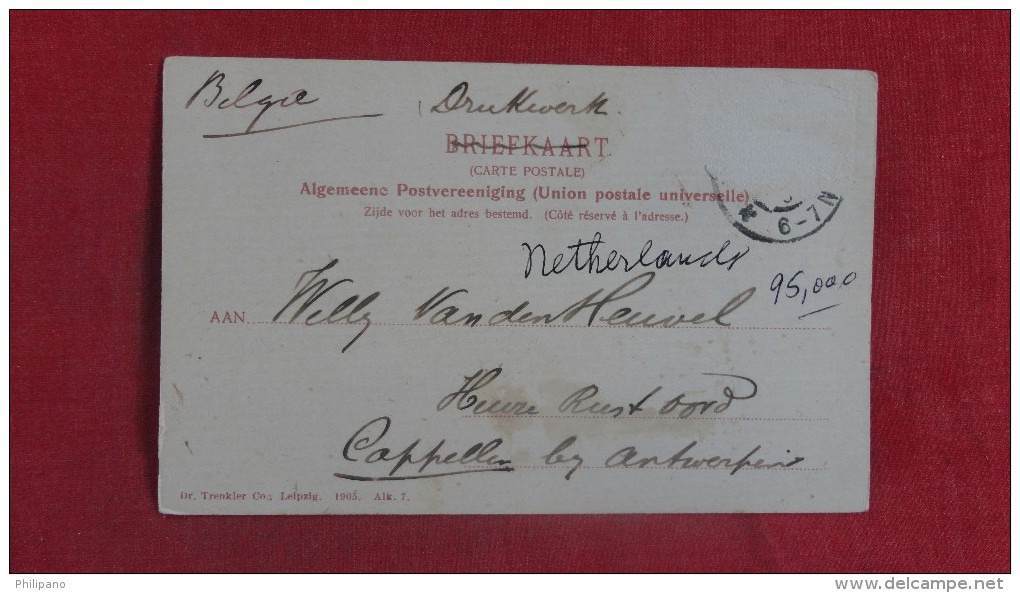 België Drukwerk.
BRIEFKAART
(CARTE POSTALE)
Algemeene Postvereeniging (Union postale universelle)
Zijde voor het adres bestemd. (Côté réservé à l'adresse.)
6-7N
Netherlands
95,000
AAN Willy Van den Heuvel
Huize Rust oord
Cappellen by Antwerpen
Dr. Trenkler Co., Leipzig. 1905. Alk. 7.
Philipano
www.delcampe.net